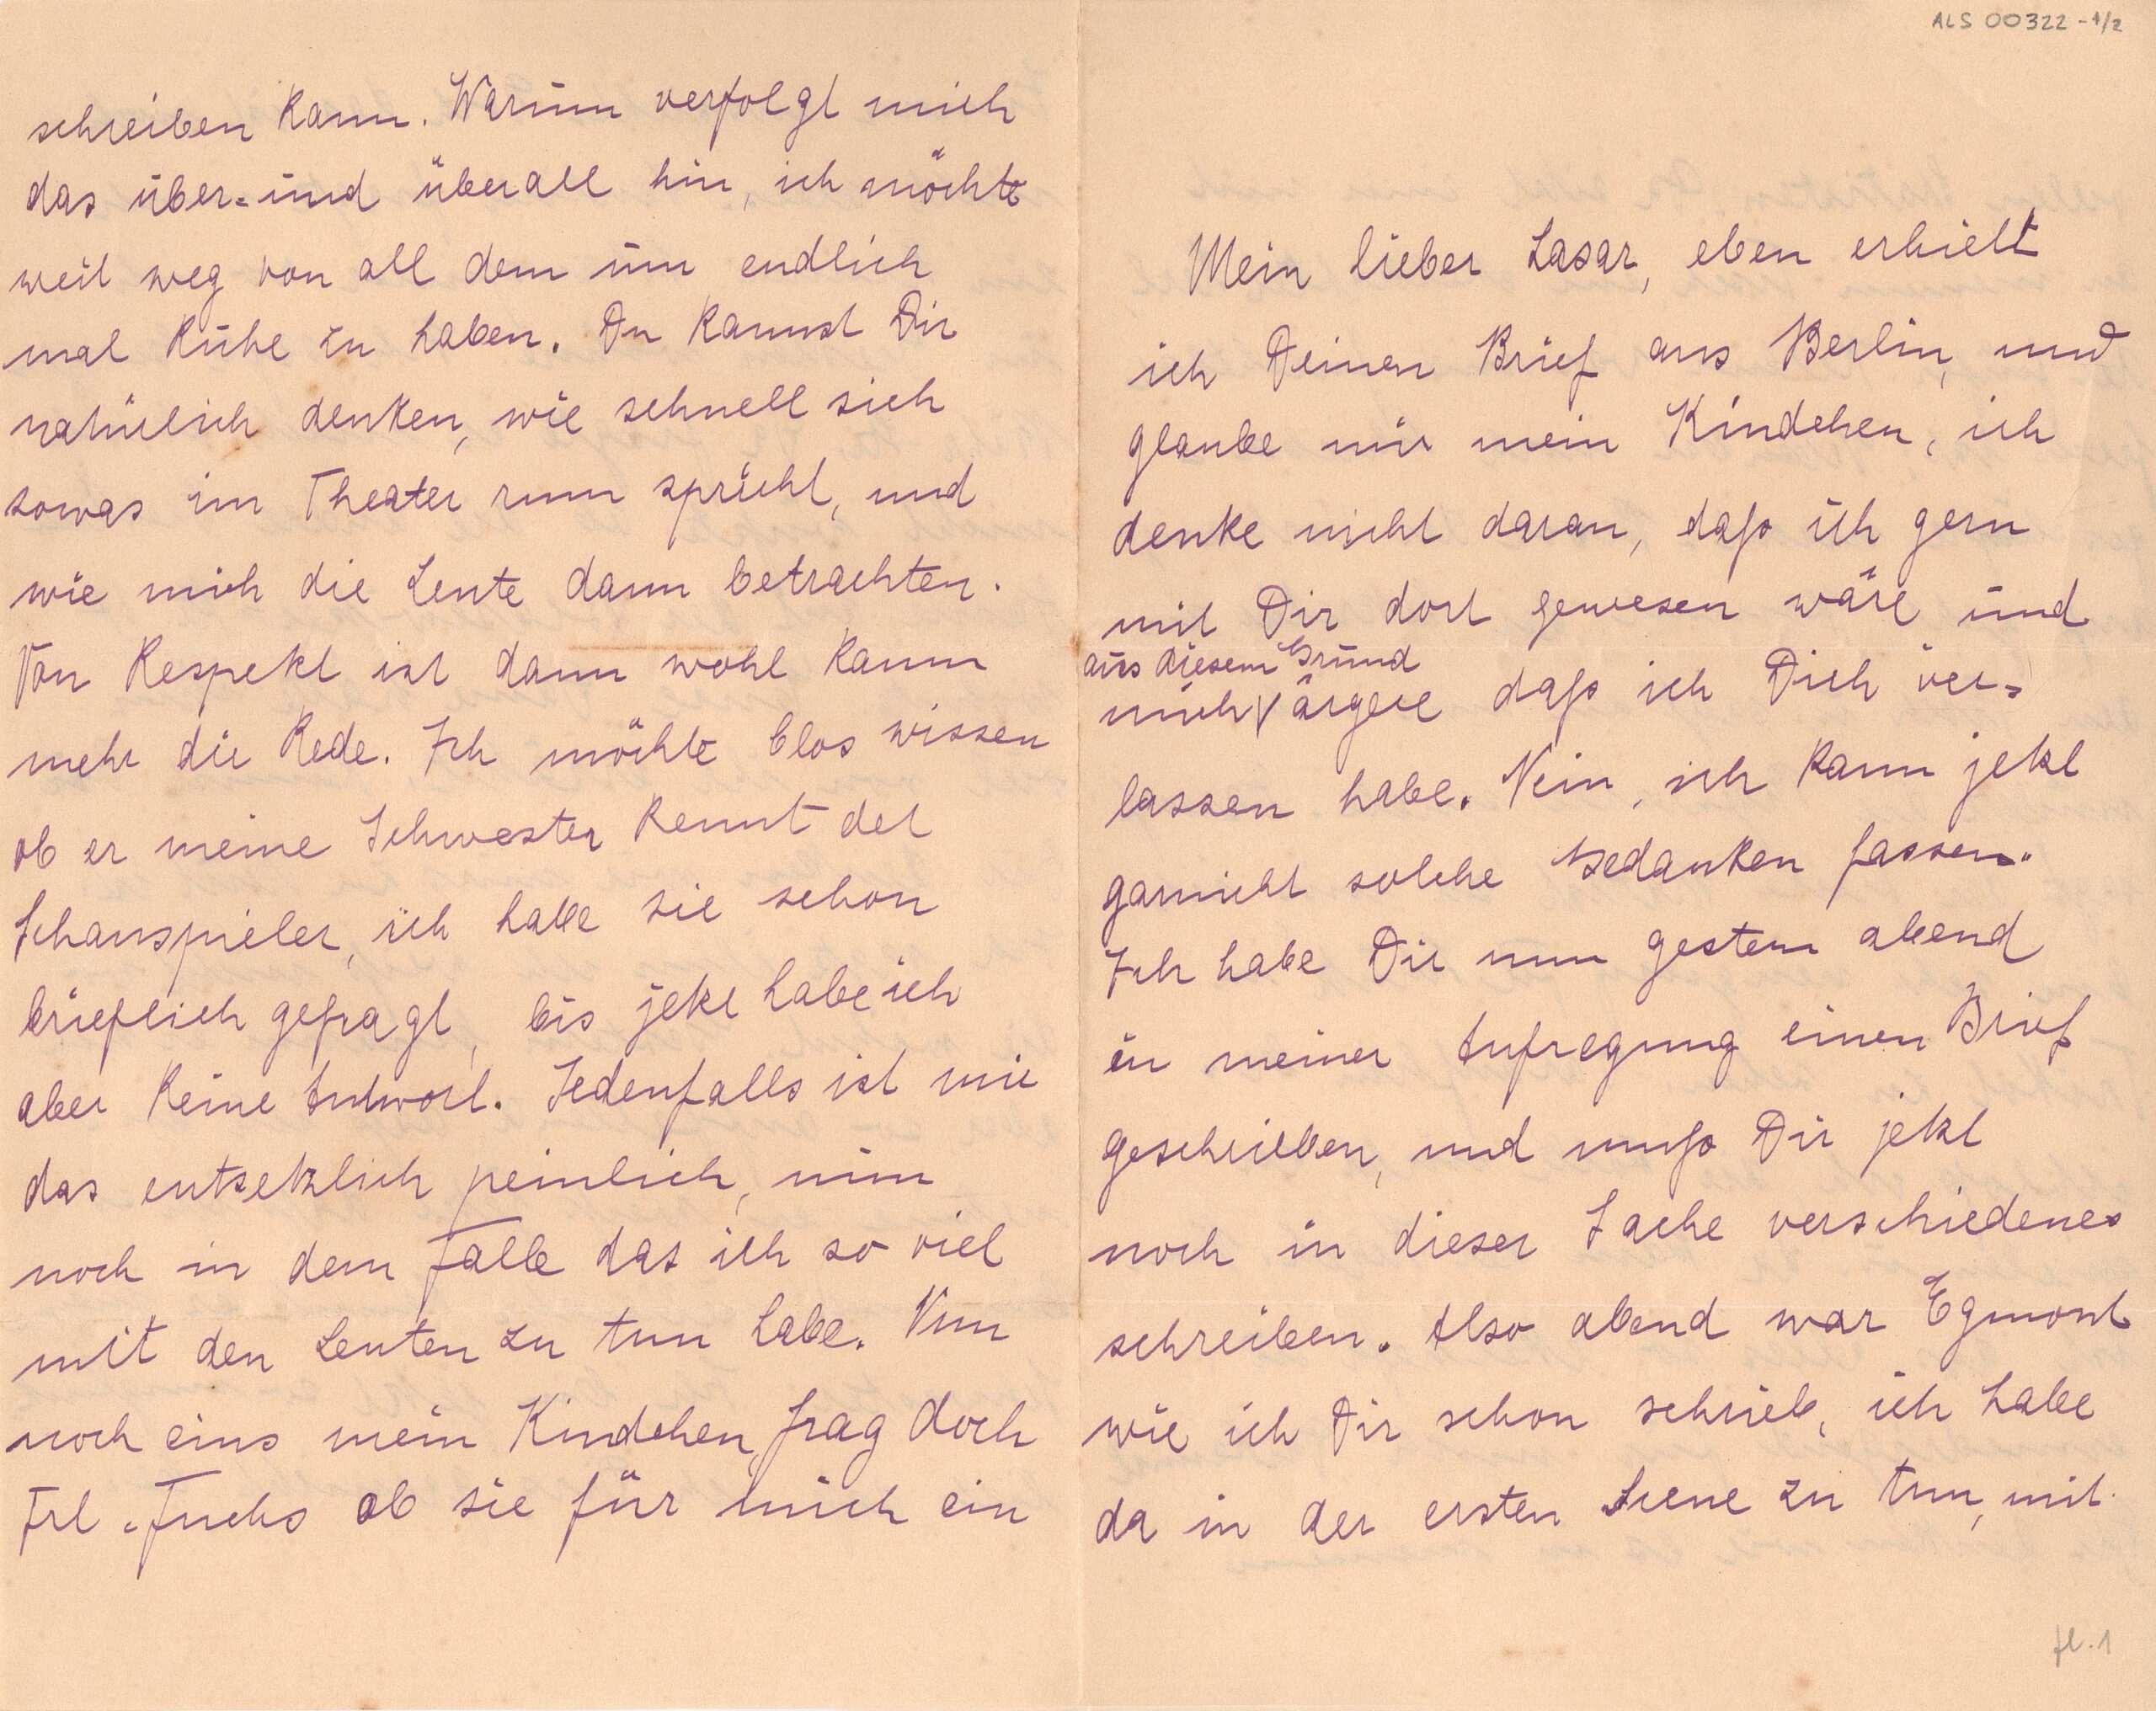 ALS 00322-1/2
Mein lieber Lasar, eben erhielt
ich Deinen Brief aus Berlin, und
glaube mir mein Kindchen, ich
denke nicht daran, daß ich gern
mit Dir dort gewesen wäre und
aus diesem Grund
mich ärgere daß ich Dich ver-
lassen habe. Nein, ich kann jetzt
garnicht solche Gedanken fassen.
Ich habe Dir nun gestern abend
in meiner Aufregung einen Brief
geschrieben, und muß Dir jetzt
noch in dieser Sache verschiedenes
schreiben. Also abend war Egmont
wie ich Dir schon schrieb, ich habe
da in der ersten Scene zu tun, mit
fl. 1
schreiben kann. Warum verfolgt mich
das über- und überall hin, ich möchte
weit weg von all dem um endlich
mal Ruhe zu haben. Du kannst Dir
natürlich denken, wie schnell sich
sowas im Theater rum spricht, und
wie mich die Leute dann betrachten.
Von Respekt ist dann wohl kaum
mehr die Rede. Ich möchte blos wissen
ob er meine Schwester kennt der
Schauspieler, ich habe sie schon
brieflich gefragt, bis jetzt habe ich
aber keine Antwort. Jedenfalls ist mir
das entsetzlich peinlich, nun
noch in dem Falle das ich so viel
mit den Leuten zu tun habe. Nun
noch eins mein Kindchen, frag doch
Frl. Fuchs ob sie für mich ein